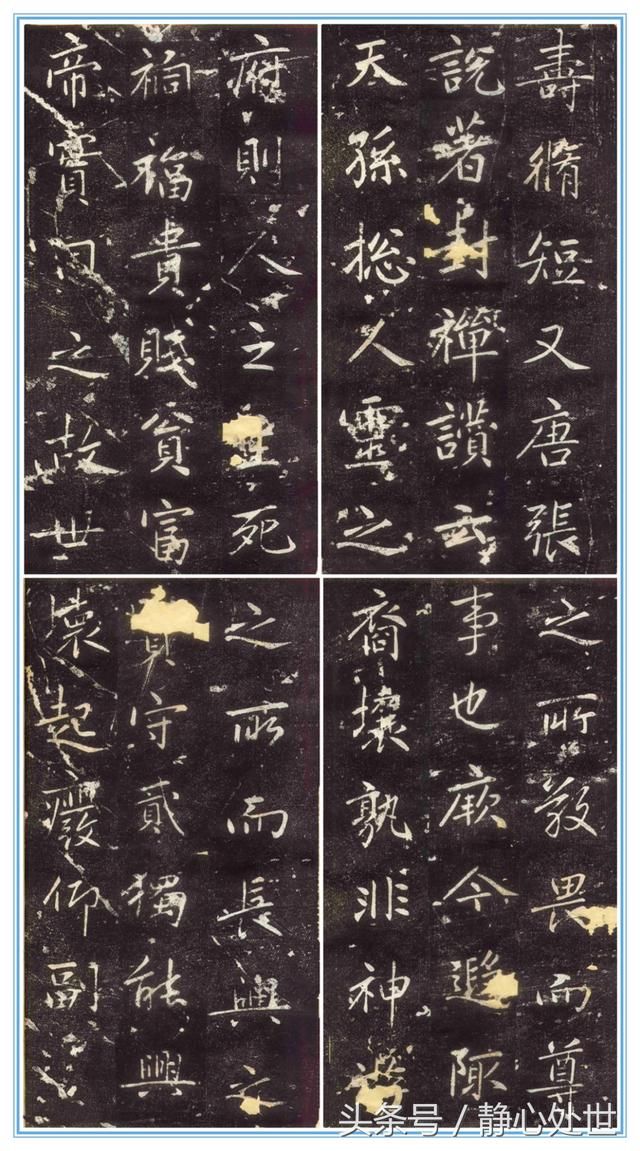 壽脩短又唐張
說著封禪讚云
天孫捴人靈之
府則人之生死
禍福貴賤貧富
帝實司之故世
之所敬畏而尊
事也厥今遐陬
裔壤孰非神
之所而長興之
守貳獨能興
壞起廢仰副
头条号 / 静心处世